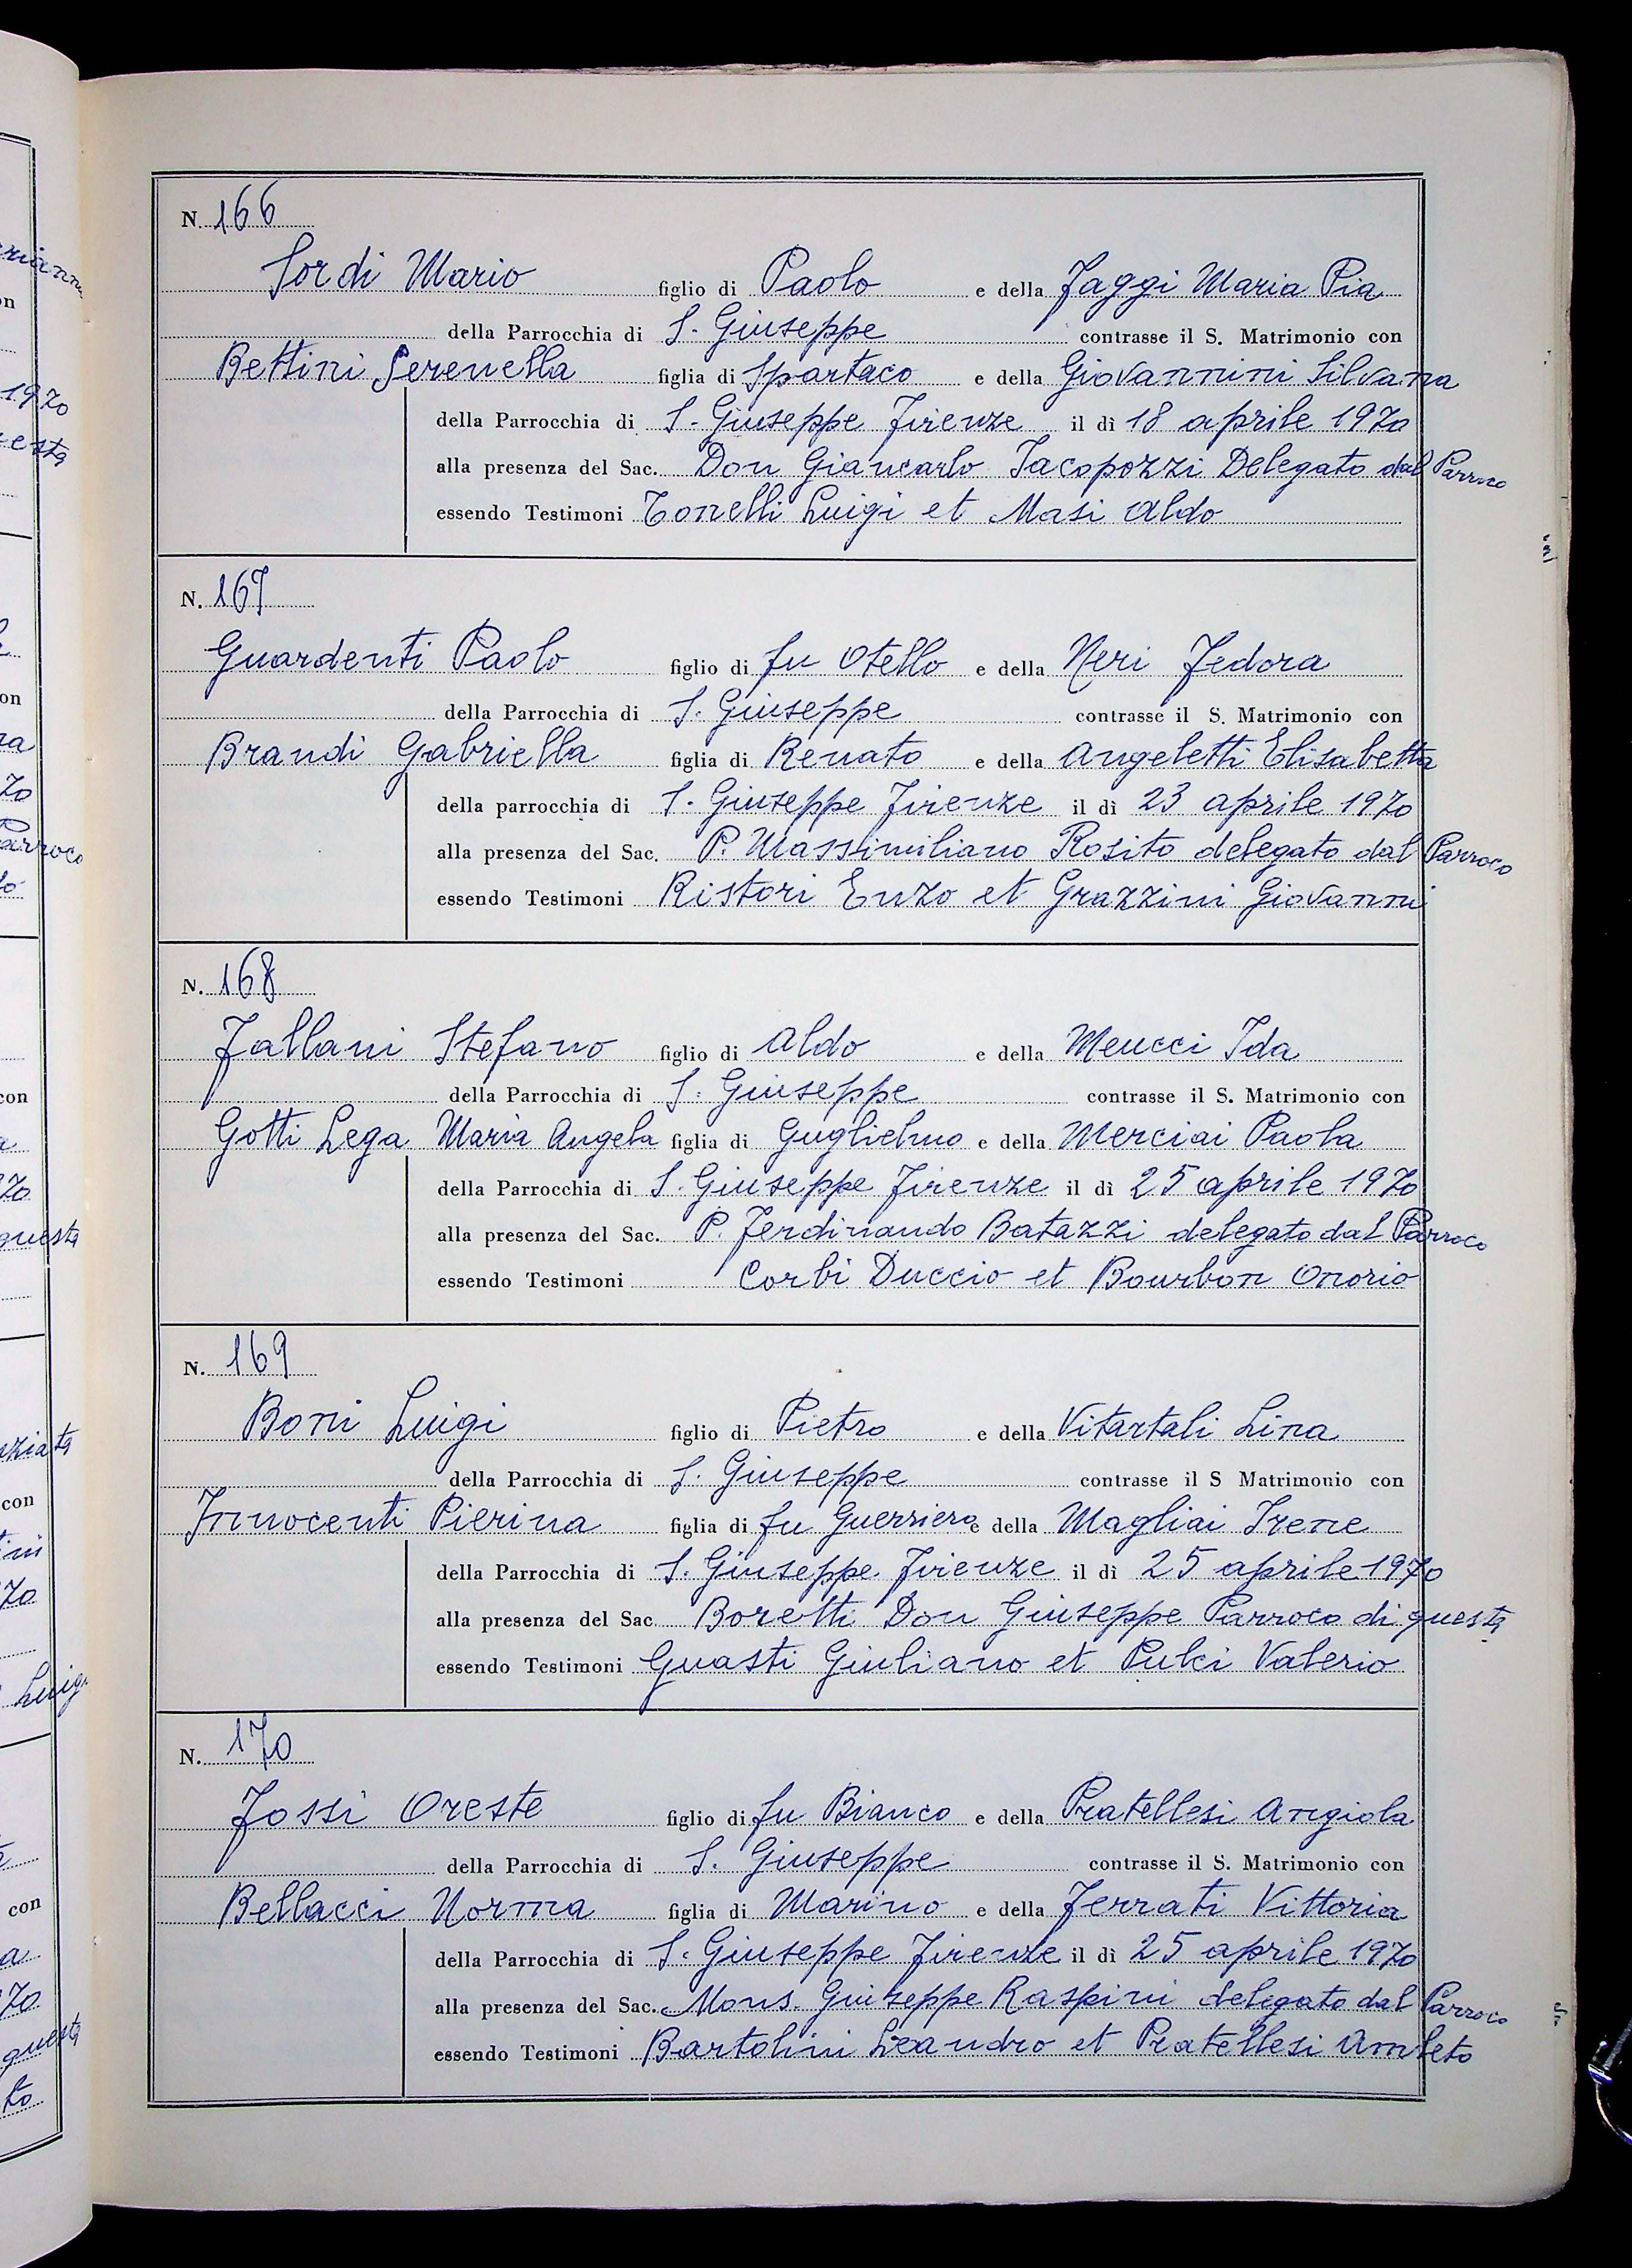 N. 166
Sordi Mario figlio di Paolo e della Faggi Maria Pia
della Parrocchia di S. Giuseppe contrasse il S. Matrimonio con
Bettini Serenella figlia di Spartaco e della Giovannini Silvana
della Parrocchia di S. Giuseppe Firenze il dì 18 aprile 1970
alla presenza del Sac. Don Giancarlo Jacopozzi Delegato dal Parroco
essendo Testimoni Tonelli Luigi et Masi Aldo
N. 167
Guardenti Paolo figlio di fu Otello e della Neri Fedora
della Parrocchia di S. Giuseppe contrasse il S. Matrimonio con
Brandi Gabriella figlia di Renato e della Angeletti Elisabetta
della parrocchia di S. Giuseppe Firenze il dì 23 aprile 1970
alla presenza del Sac. P. Massimiliano Rosito delegato dal Parroco
essendo Testimoni Ristori Enzo et Grazzini Giovanni
N. 168
Fallani Stefano figlio di Aldo e della Meucci Ida
della Parrocchia di S. Giuseppe contrasse il S. Matrimonio con
Gotti Lega Maria Angela figlia di Guglielmo e della Merciai Paola
della Parrocchia di S. Giuseppe Firenze il dì 25 aprile 1970
alla presenza del Sac. P. Ferdinando Batazzi delegato dal Parroco
essendo Testimoni Corbi Duccio et Bourbon Onorio
N. 169
Boni Luigi figlio di Pietro e della Vitartali Lina
della Parrocchia di S. Giuseppe contrasse il S Matrimonio con
Innocenti Pierina figlia di fu Guerriero e della Magliai Irene
della Parrocchia di S. Giuseppe Firenze il dì 25 aprile 1970
alla presenza del Sac. Boretti Don Giuseppe Parroco di questa
essendo Testimoni Guasti Giuliano et Pulci Valerio
N. 170
Fossi Oreste figlio di fu Bianco e della Pratellesi Angiola
della Parrocchia di S. Giuseppe contrasse il S. Matrimonio con
Bellacci Norma figlia di Marino e della Ferrati Vittoria
della Parrocchia di S. Giuseppe Firenze il dì 25 aprile 1970
alla presenza del Sac. Mons. Giuseppe Raspini delegato dal Parroco
essendo Testimoni Bartolini Leandro et Pratellesi Amleto